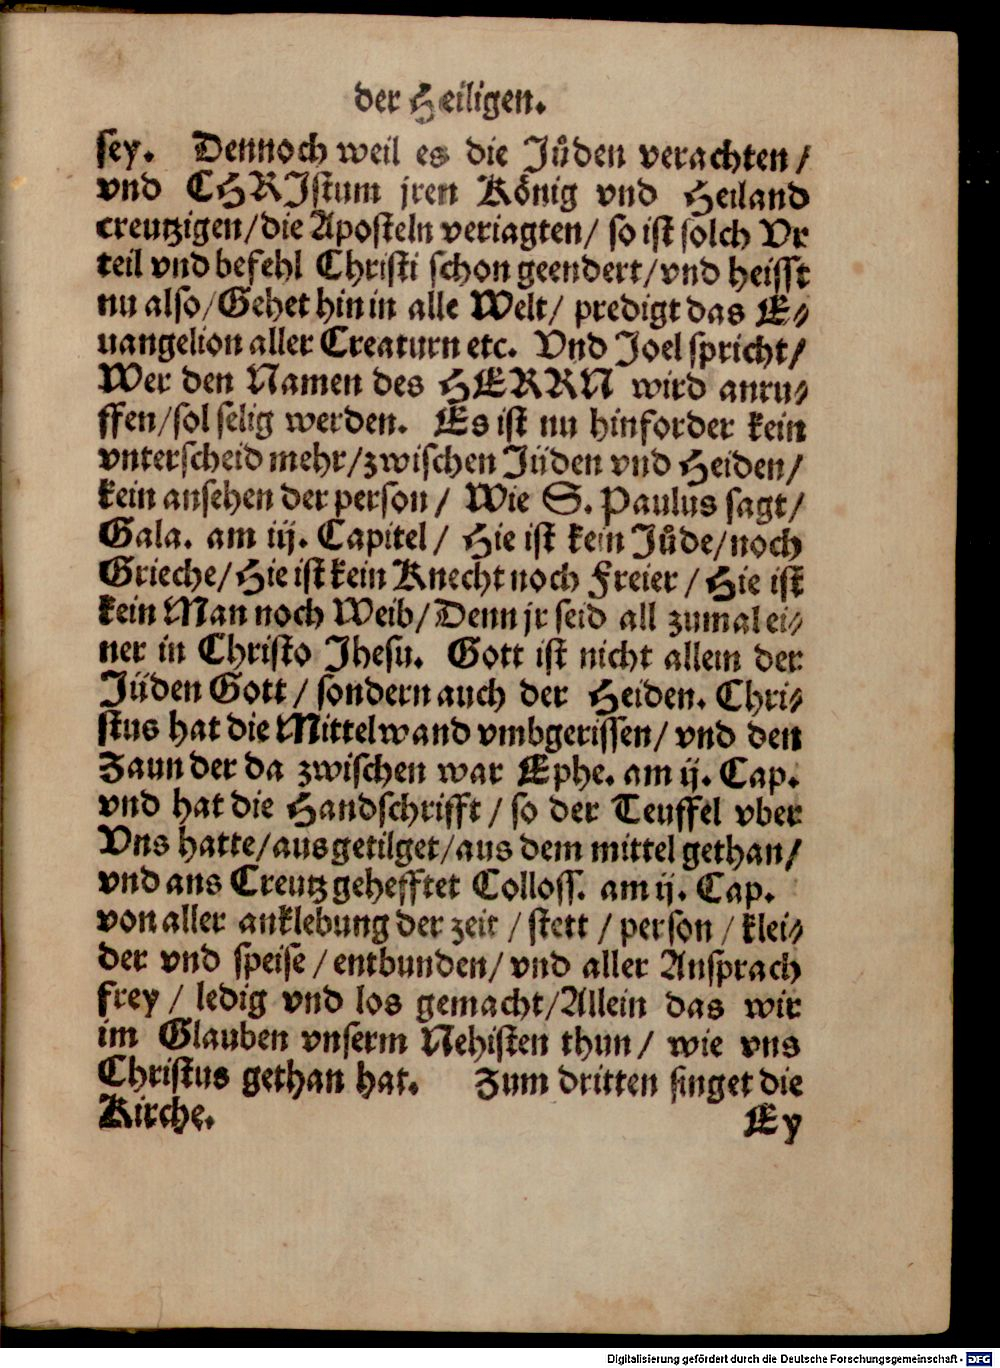 der Heiligen.
sey. Dennoch weil es die Jüden verachten /
vnd CHRJstum jren König vnd Heiland
creutzigen/die Aposteln veriagten/ so ist solch Vr
teil vnd befehl Christi schon geendert/vnd heisst
nu also/Gehet hin in alle Welt/ predigt das E⸗
uangelion aller Creaturn etc. Vnd Joel spricht/
Wer den Namen des HERRN wird anru⸗
ffen/sol selig werden. Es ist nu hinforder kein
vnterscheid mehr/zwischen Jüden vnd Heiden/
kein ansehen der person / Wie S. Paulus sagt/
Gala. am iij. Capitel / Hie ist kein Jüde/noch
Grieche/Hie ist kein Knecht noch Freier / Hie ist
kein Man noch Weib/Denn jr seid all zumal ei⸗
ner in Christo Jhesu. Gott ist nicht allein der
Jüden Gott / sondern auch der Heiden. Chri⸗
stus hat die Mittelwand vmbgerissen/ vnd den
Zaun der da zwischen war Ephe. am ij. Cap.
vnd hat die Handschrifft / so der Teuffel vber
Vns hatte/ausgetilget/aus dem mittel gethan/
vnd ans Creutz gehefftet Colloss. am ij. Cap.
von aller anklebung der zeit / stett / person / klei⸗
der vnd speise / entbunden/ vnd aller Ansprach
frey / ledig vnd los gemacht/Allein das wir
im Glauben vnserm Nehisten thun/ wie vns
Christus gethan hat. Zum dritten singet die
Kirche. Ey
Digitalisierung gefördert durch die Deutsche Forschungsgemeinschaft - DFG